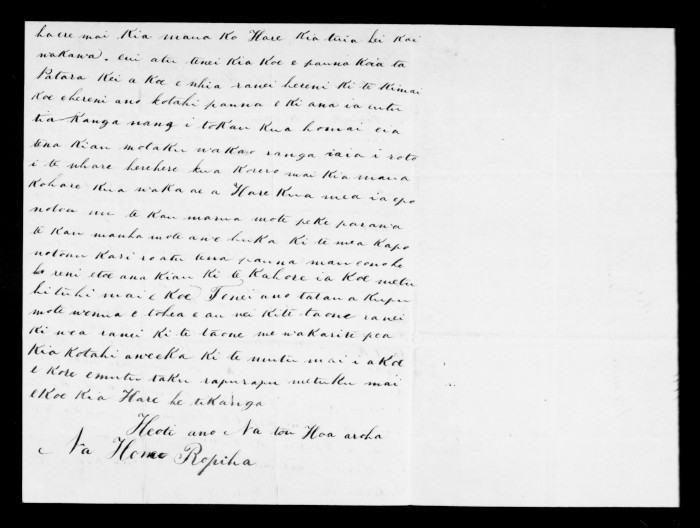 haere mai kia mana ko Hare kia tuia hei kai
wakawa. eui atu tenei kia koe e pauna koia ta
Patara kei a koe e nhia ranei hereni ki te kimai
koe ehereni ano kotahi pauna e ki ana ia
tia kanga nana i tokau kua homai eia
tena kiau motaku wakao ranga iaia i roto
i te whare herehere kua korero mai kia mana
kohare kua waka ae a Hare kua mea ia epo
notou nu te kau mauna mote peke parawa
te kau manha mote awe huka ki te mea kapo
notonu kari roatu tena pauna mau eono he
hereni etoe ana kiau ki te kahore ia koe metu
hituhi mai e koe Tenei ano taraua kupu
mote wenua e tohea e au nei kite taone ranei
ki wea ranei ki te taone me wakarite pea
kia kotahi aweeka ki te mutu mai i a koe
e kore emutu taku rapurapu metuku mai
ekoe kia Hare he tikanga
Heoti ano Na tou Hoa aroha
Na Ropiha